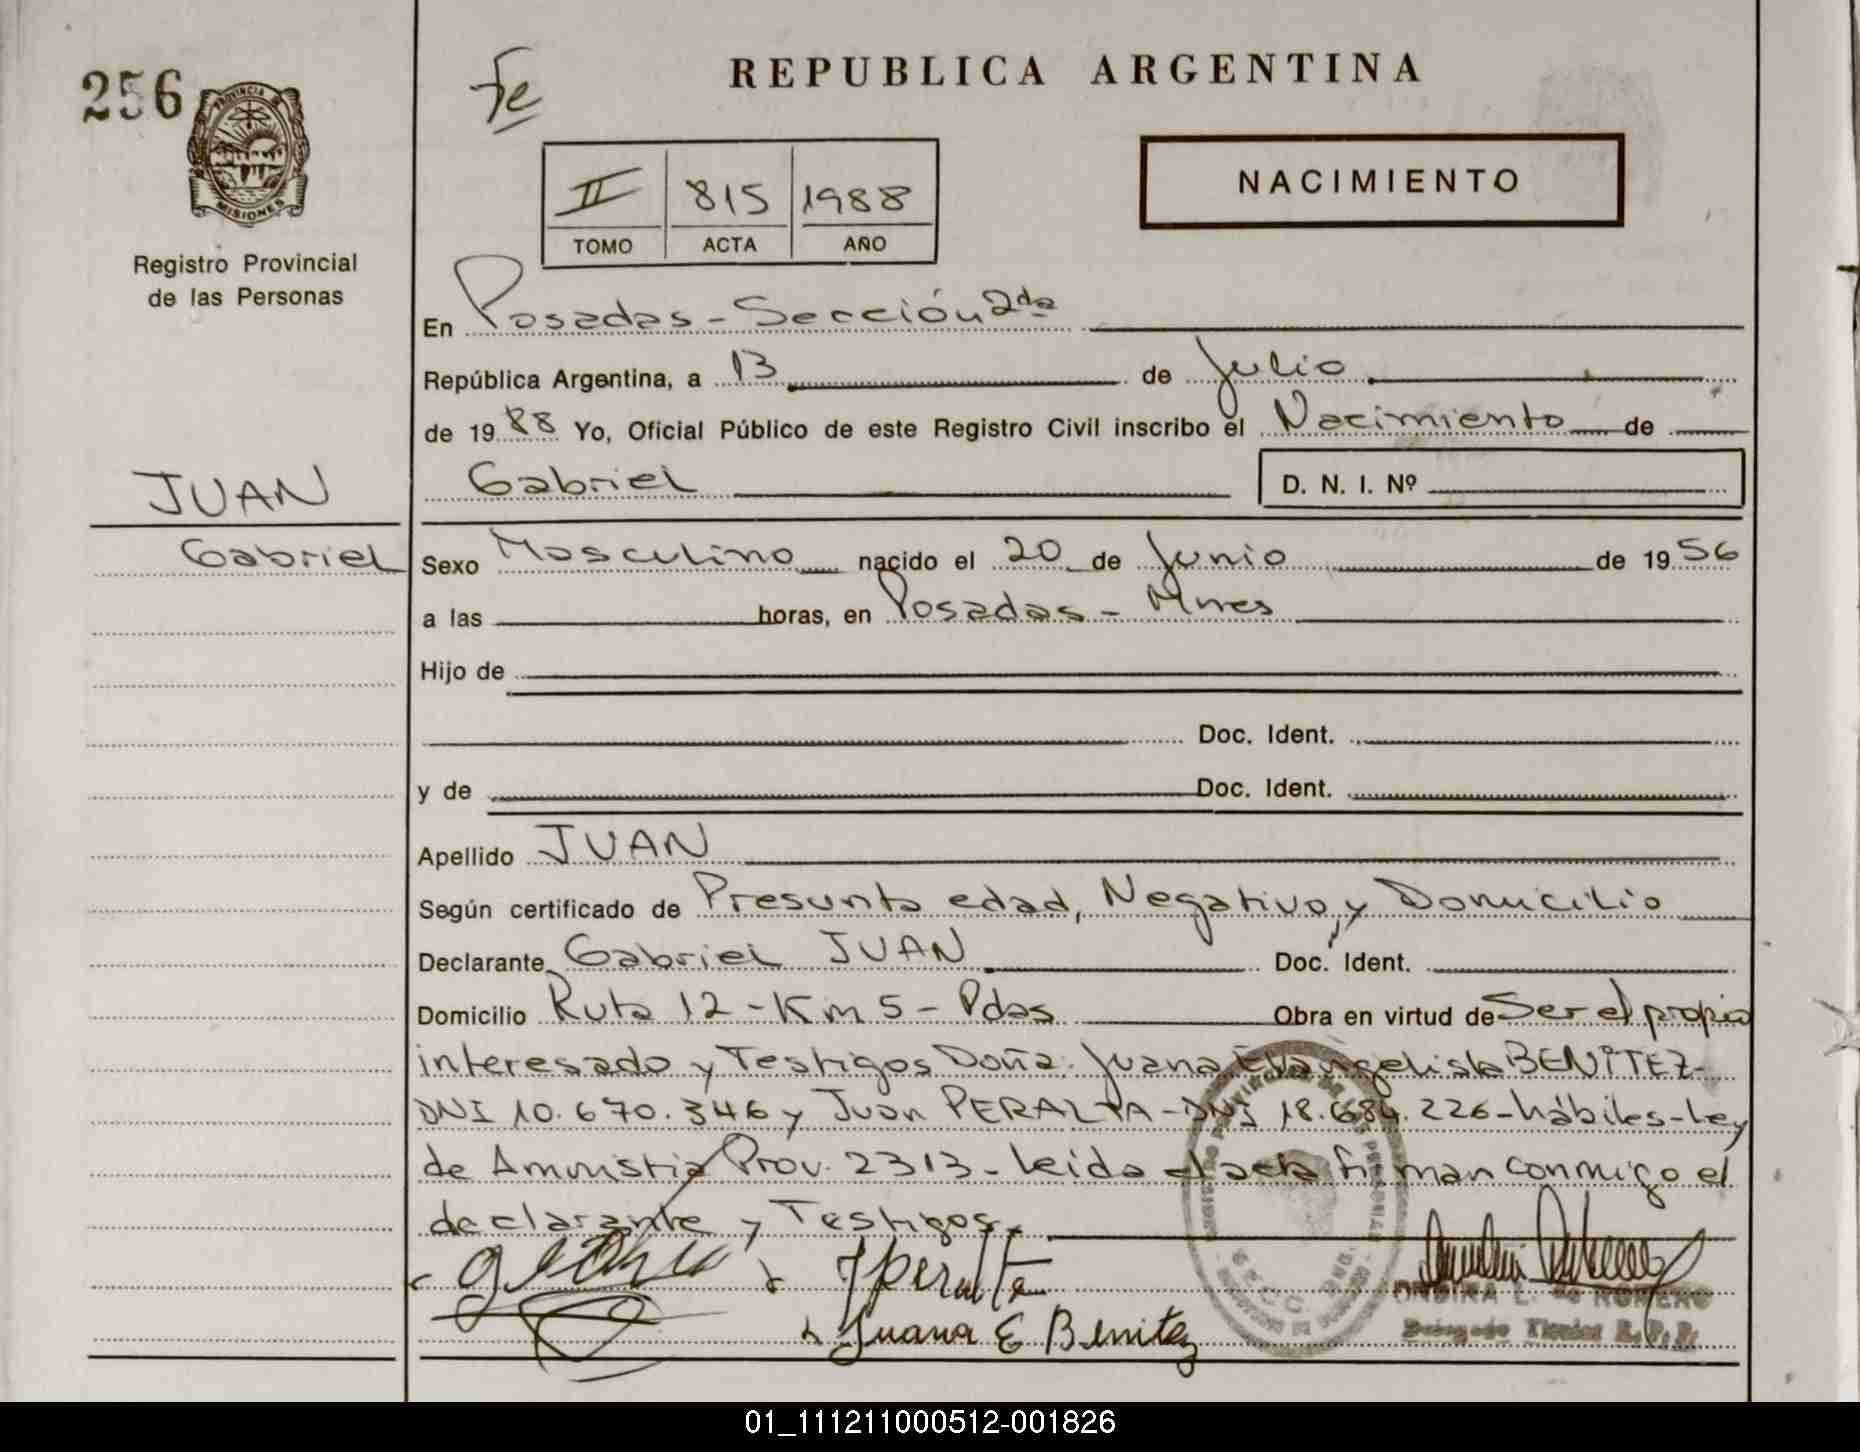 256
PROVINCIA DE
MISIONES
Registro Provincial
de las Personas
Fe
REPUBLICA ARGENTINA
II 815 1988
TOMO ACTA AÑO
NACIMIENTO
En Posadas - Sección 2da
República Argentina, a 13 de Julio
de 1988 Yo, Oficial Público de este Registro Civil inscribo el Nacimiento de
Gabriel D. N. I. Nº
JUAN
Gabriel
Sexo Masculino nacido el 20 de Junio de 1956
a las horas, en Posadas - Mnes
Hijo de
Doc. Ident.
y de Doc. Ident.
Apellido JUAN
Según certificado de Presunta edad, Negativo, y Domicilio
Declarante Gabriel JUAN Doc. Ident.
Domicilio Ruta 12 - Km 5 - Pdas Obra en virtud de Ser el propio
interesado y Testigos Doña: Juana Evangelista BENITEZ-
DNI 10.670.346 y Juan PERALTA - DNI 18.684.226 - hábiles - Ley
de Amnistia Prov. 2313 - Leida el acta firman conmigo el
declarante y Testigos.
JPeralta
Juana E Benitez
L. de ROMERO
Delegado Técnico R.P.P.
01_111211000512-001826